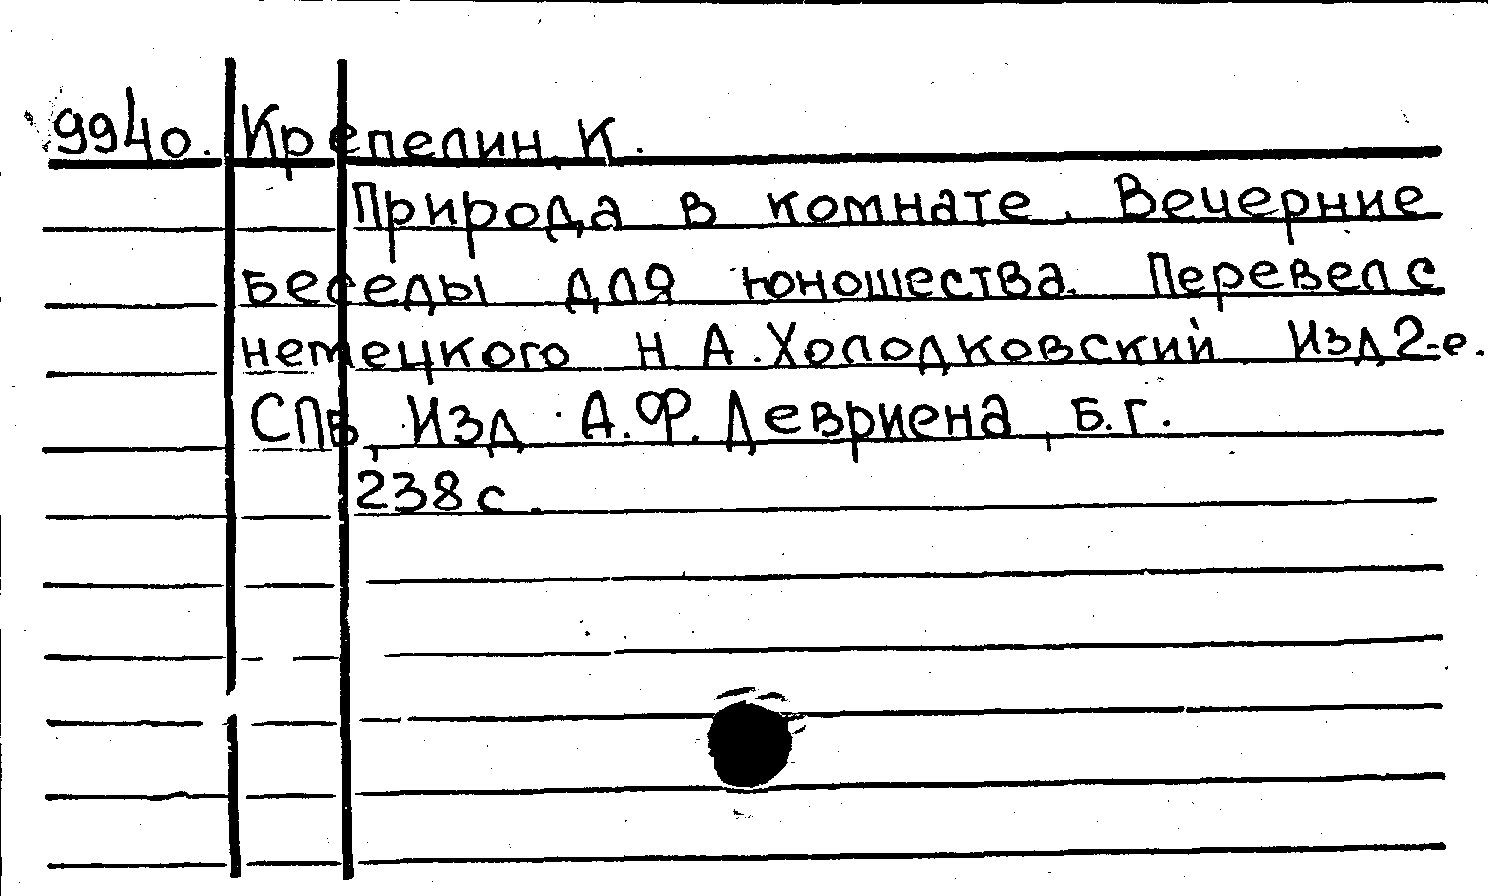 9940. Крепелин, К.
Природа в комнате. Вечерние
беседы для юношества. Перевел с
немецкого Н.А.Холодковский. Изд 2-е.
СПБ, Изд. А.Ф. Девриена, Б.г.
238 с.